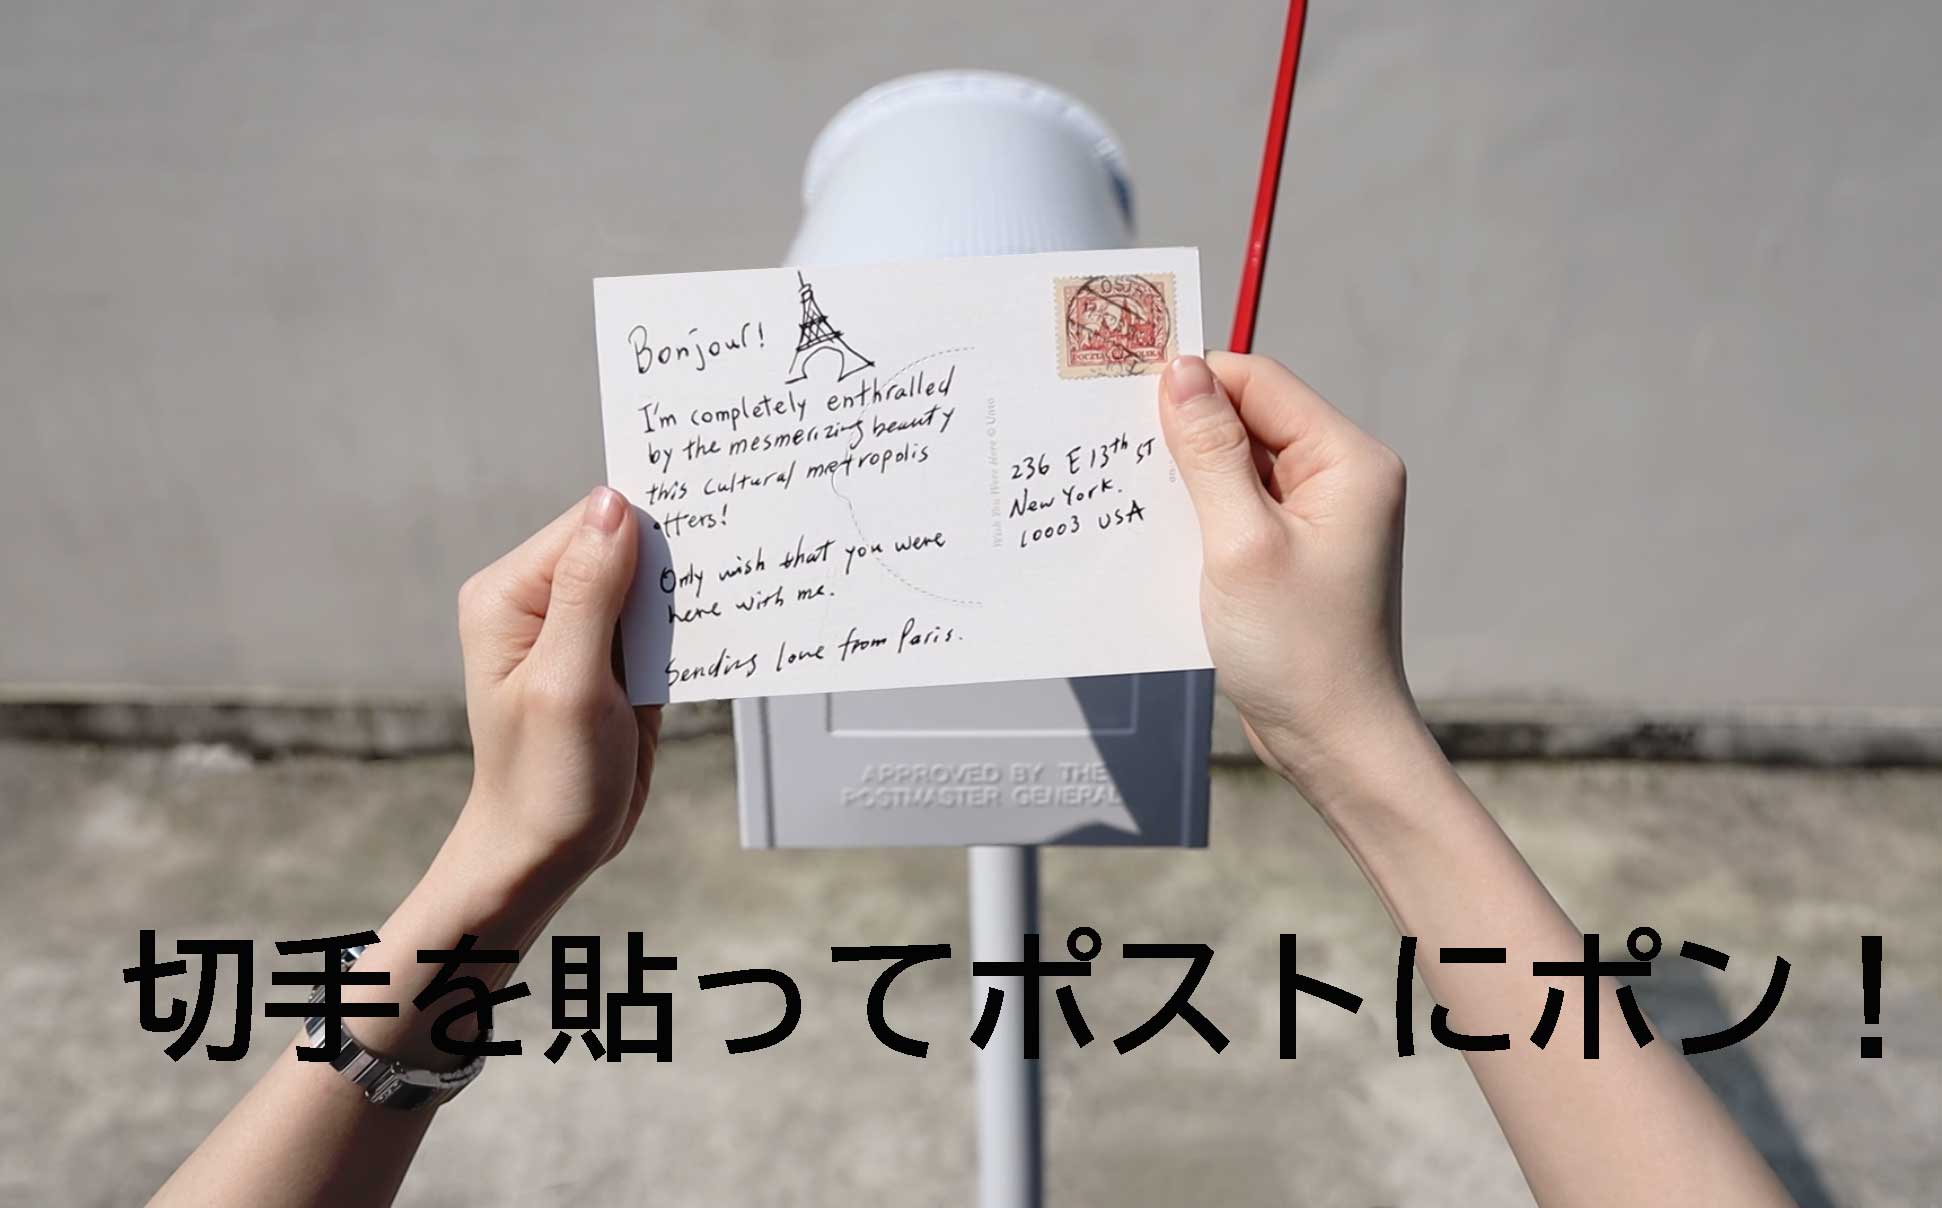 Bonjour!
I'm completely enthralled
by the mesmerizing beauty
this cultural metropolis
offers!
Only wish that you were
here with me.
Sending love from Paris.
POCZTA POLSKA
Wish You Were Here © Unto
236 E 13th ST
New York.
10003 USA
APPROVED BY THE
POSTMASTER GENERAL
切手を貼ってポストにポン！